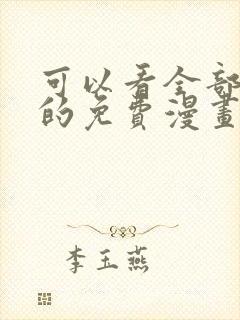 可以看全部
的免費漫畫
李玉燕